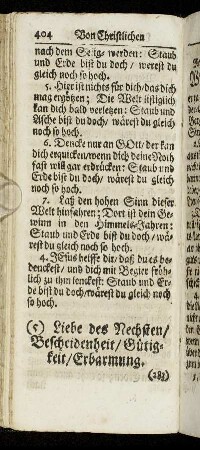 404 Von Christlichen
nach dem Selig-werden: Staub
und Erde bist du doch / werest du
gleich noch so hoch.
5. Hier ist nichts für dich / das dich
mag ergötzen; Die Welt listiglich
kan dich bald verletzen: Staub und
Asche bist du doch / wärest du gleich
noch so hoch.
6. Dencke nur an GOtt / der kan
dich erquicken / wenn dich deine Noth
fast will gar erdrücken: Staub und
Erde bist du doch / wärest du gleich
noch so hoch.
7. Laß den hohen Sinn dieser
Welt hinfahren; Dort ist dein Ge-
winn in den Himmels-Jahren:
Staub und Erde bist du doch / wä-
rest du gleich noch so hoch.
4. JEsus helffe dir / daß du es be-
denckest / und dich mit Begier fröh-
lich zu ihm lenckest: Staub und Er-
de bist du doch / wärest du gleich noch
so hoch.
(5) Liebe des Nechsten /
Bescheidenheit / Gütig-
keit / Erbarmung.
(283)